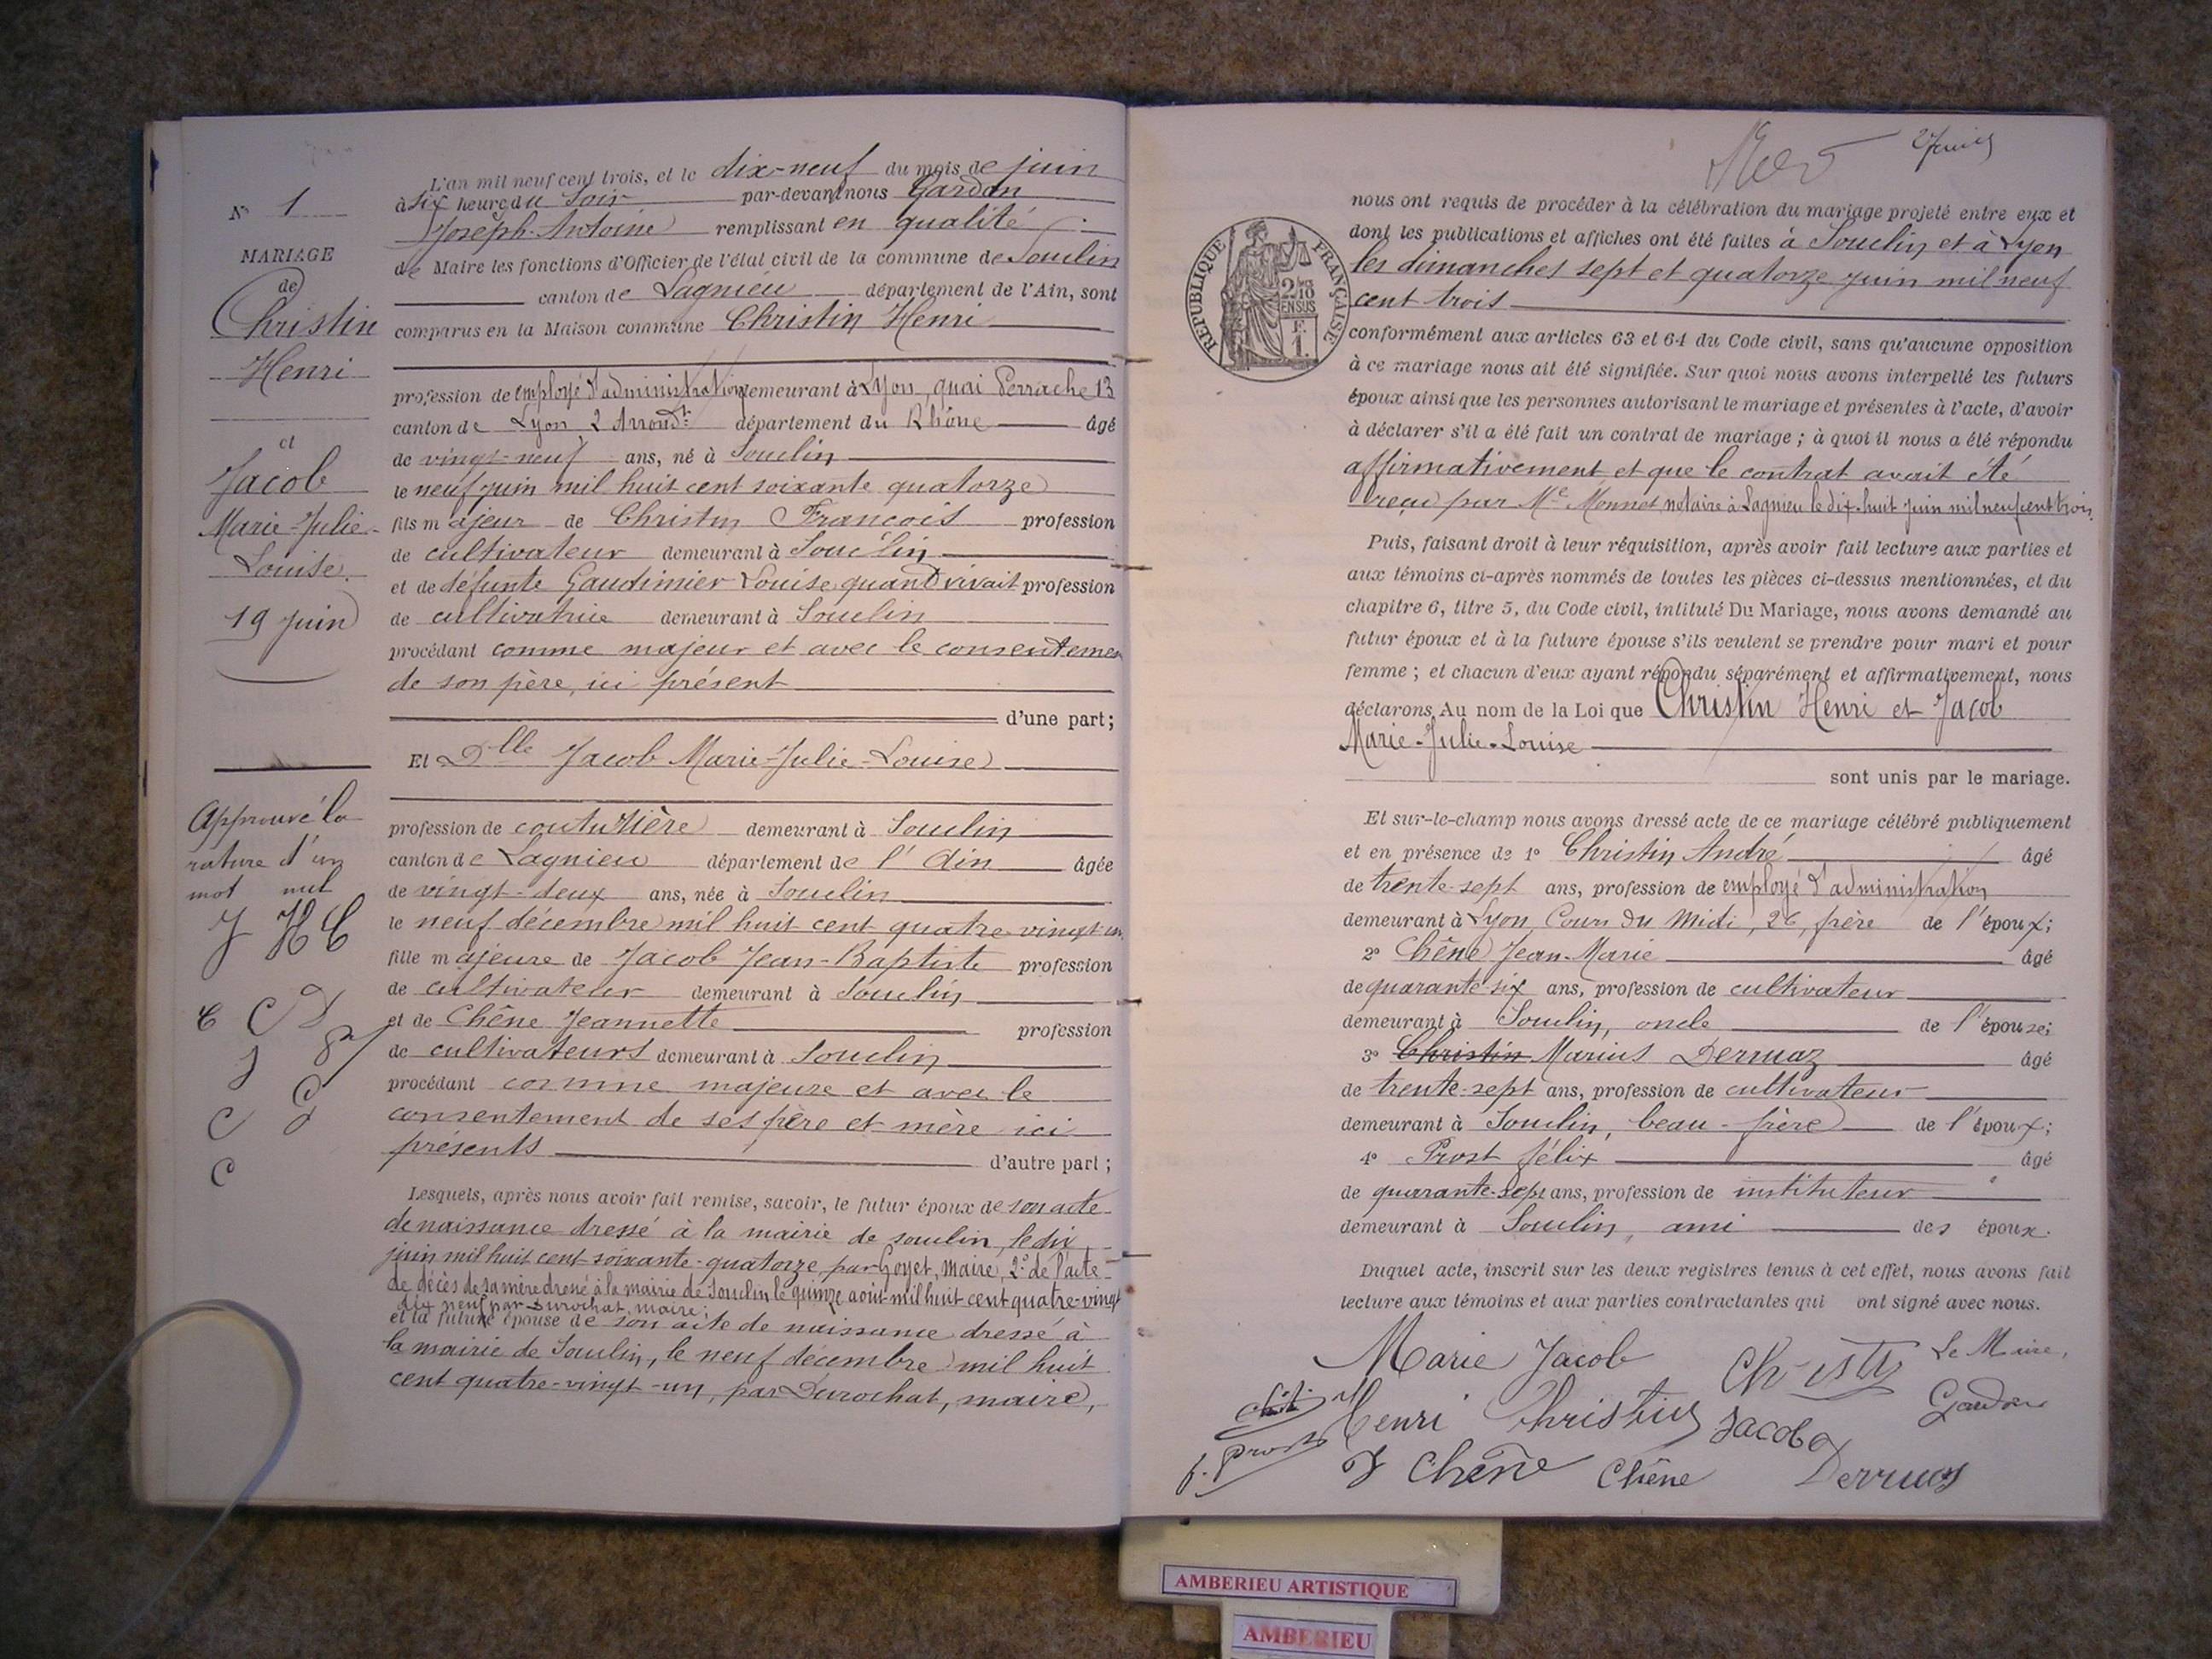 N° 1
MARIAGE
de
Christin
Henri
et
Jacob
Marie-Julie-
Louise.
19 juin
Approuvé la
rature d'un
mot nul
J H C
L'an mil neuf cent trois, et le dix-neuf du mois de juin
à six heures du soir par-devant nous Gardon
Joseph-Antoine remplissant en qualité
de Maire les fonctions d'Officier de l'état civil de la commune de Souclin
canton de Lagnieu département de l'Ain, sont
comparus en la Maison commune Christin Henri
profession de employé d'administration demeurant à Lyon, quai Perrache 13
canton de Lyon 2 Arrondt département du Rhône âgé
de vingt-neuf ans, né à Souclin
le neuf juin mil huit cent soixante quatorze
fils majeur de Christin François profession
de cultivateur demeurant à Souclin
et de défunte Gaudimier Louise, quand vivait profession
de cultivatrice demeurant à Souclin
procédant comme majeur et avec le consentemen
de son père, ici présent
d'une part;
Et Dlle Jacob Marie-Julie-Louise
profession de couturière demeurant à Souclin
canton de Lagnieu département de l'Ain âgée
de vingt-deux ans, née à Souclin
le neuf décembre mil huit cent quatre-vingt-un
fille majeure de Jacob Jean-Baptiste profession
de cultivateur demeurant à Souclin
et de Chêne Jeannette profession
de cultivateurs demeurant à Souclin
procédant comme majeure et avec le
consentement de ses père et mère ici
présents d'autre part;
Lesquels, après nous avoir fait remise, savoir, le futur époux de son acte
de naissance dressé à la mairie de Souclin, le dix
juin mil huit cent soixante-quatorze, par Goyet, maire, 2° de l'acte
de décès de sa mère dressé à la mairie de Souclin le quinze août mil huit cent quatre-vingt
dix neuf par Durochat, maire;
et la future épouse de son acte de naissance dressé à
la mairie de Souclin, le neuf décembre mil huit
cent quatre-vingt-un, par Durochat, maire,
nous ont requis de procéder à la célébration du mariage projeté entre eux et
dont les publications et affiches ont été faites à Souclin et à Lyon
les dimanches sept et quatorze juin mil neuf
cent trois
RÉPUBLIQUE FRANÇAISE
2/10 EN SUS
F. 1.
conformément aux articles 63 et 64 du Code civil, sans qu'aucune opposition
à ce mariage nous ait été signifiée. Sur quoi nous avons interpellé les futurs
époux ainsi que les personnes autorisant le mariage et présentes à l'acte, d'avoir
à déclarer s'il a été fait un contrat de mariage; à quoi il nous a été répondu
affirmativement et que le contrat avait été
reçu par Me Monnet notaire à Lagnieu le dix-huit juin mil neuf cent trois.
Puis, faisant droit à leur réquisition, après avoir fait lecture aux parties et
aux témoins ci-après nommés de toutes les pièces ci-dessus mentionnées, et du
chapitre 6, titre 5, du Code civil, intitulé Du Mariage, nous avons demandé au
futur époux et à la future épouse s'ils veulent se prendre pour mari et pour
femme; et chacun d'eux ayant répondu séparément et affirmativement, nous
déclarons, Au nom de la Loi que Christin Henri et Jacob
Marie-Julie-Louise
sont unis par le mariage.
Et sur-le-champ nous avons dressé acte de ce mariage célébré publiquement
et en présence de 1° Christin André âgé
de trente-sept ans, profession de employé d'administration
demeurant à Lyon, Cours du Midi, 26, frère de l'époux;
2° Chêne Jean-Marie âgé
de quarante-six ans, profession de cultivateur
demeurant à Souclin, oncle de l'épouse;
3° Christin Marius Derruaz âgé
de trente-sept ans, profession de cultivateur
demeurant à Souclin, beau-frère de l'époux;
4° Prost félix âgé
de quarante-sept ans, profession de instituteur
demeurant à Souclin, ami des époux.
Duquel acte, inscrit sur les deux registres tenus à cet effet, nous avons fait
lecture aux témoins et aux parties contractantes qui ont signé avec nous.
Marie Jacob Le Maire,
Henri Christin Jacob Gardon
f. Prost J Chêne Chêne Derruaz
AMBERIEU ARTISTIQUE
AMBERIEU